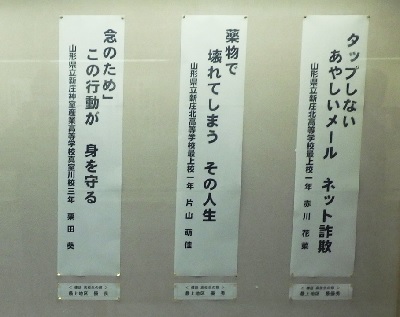 タップしない
あやしいメール　ネット詐欺
山形県立新庄北高等学校最上校一年　赤川　花菜
薬物で
壊れてしまう　その人生
山形県立新庄北高等学校最上校一年　片山　萌佳
念のため」
この行動が　身を守る
山形県立新庄神室産業高等学校真室川校三年　栗田　葵